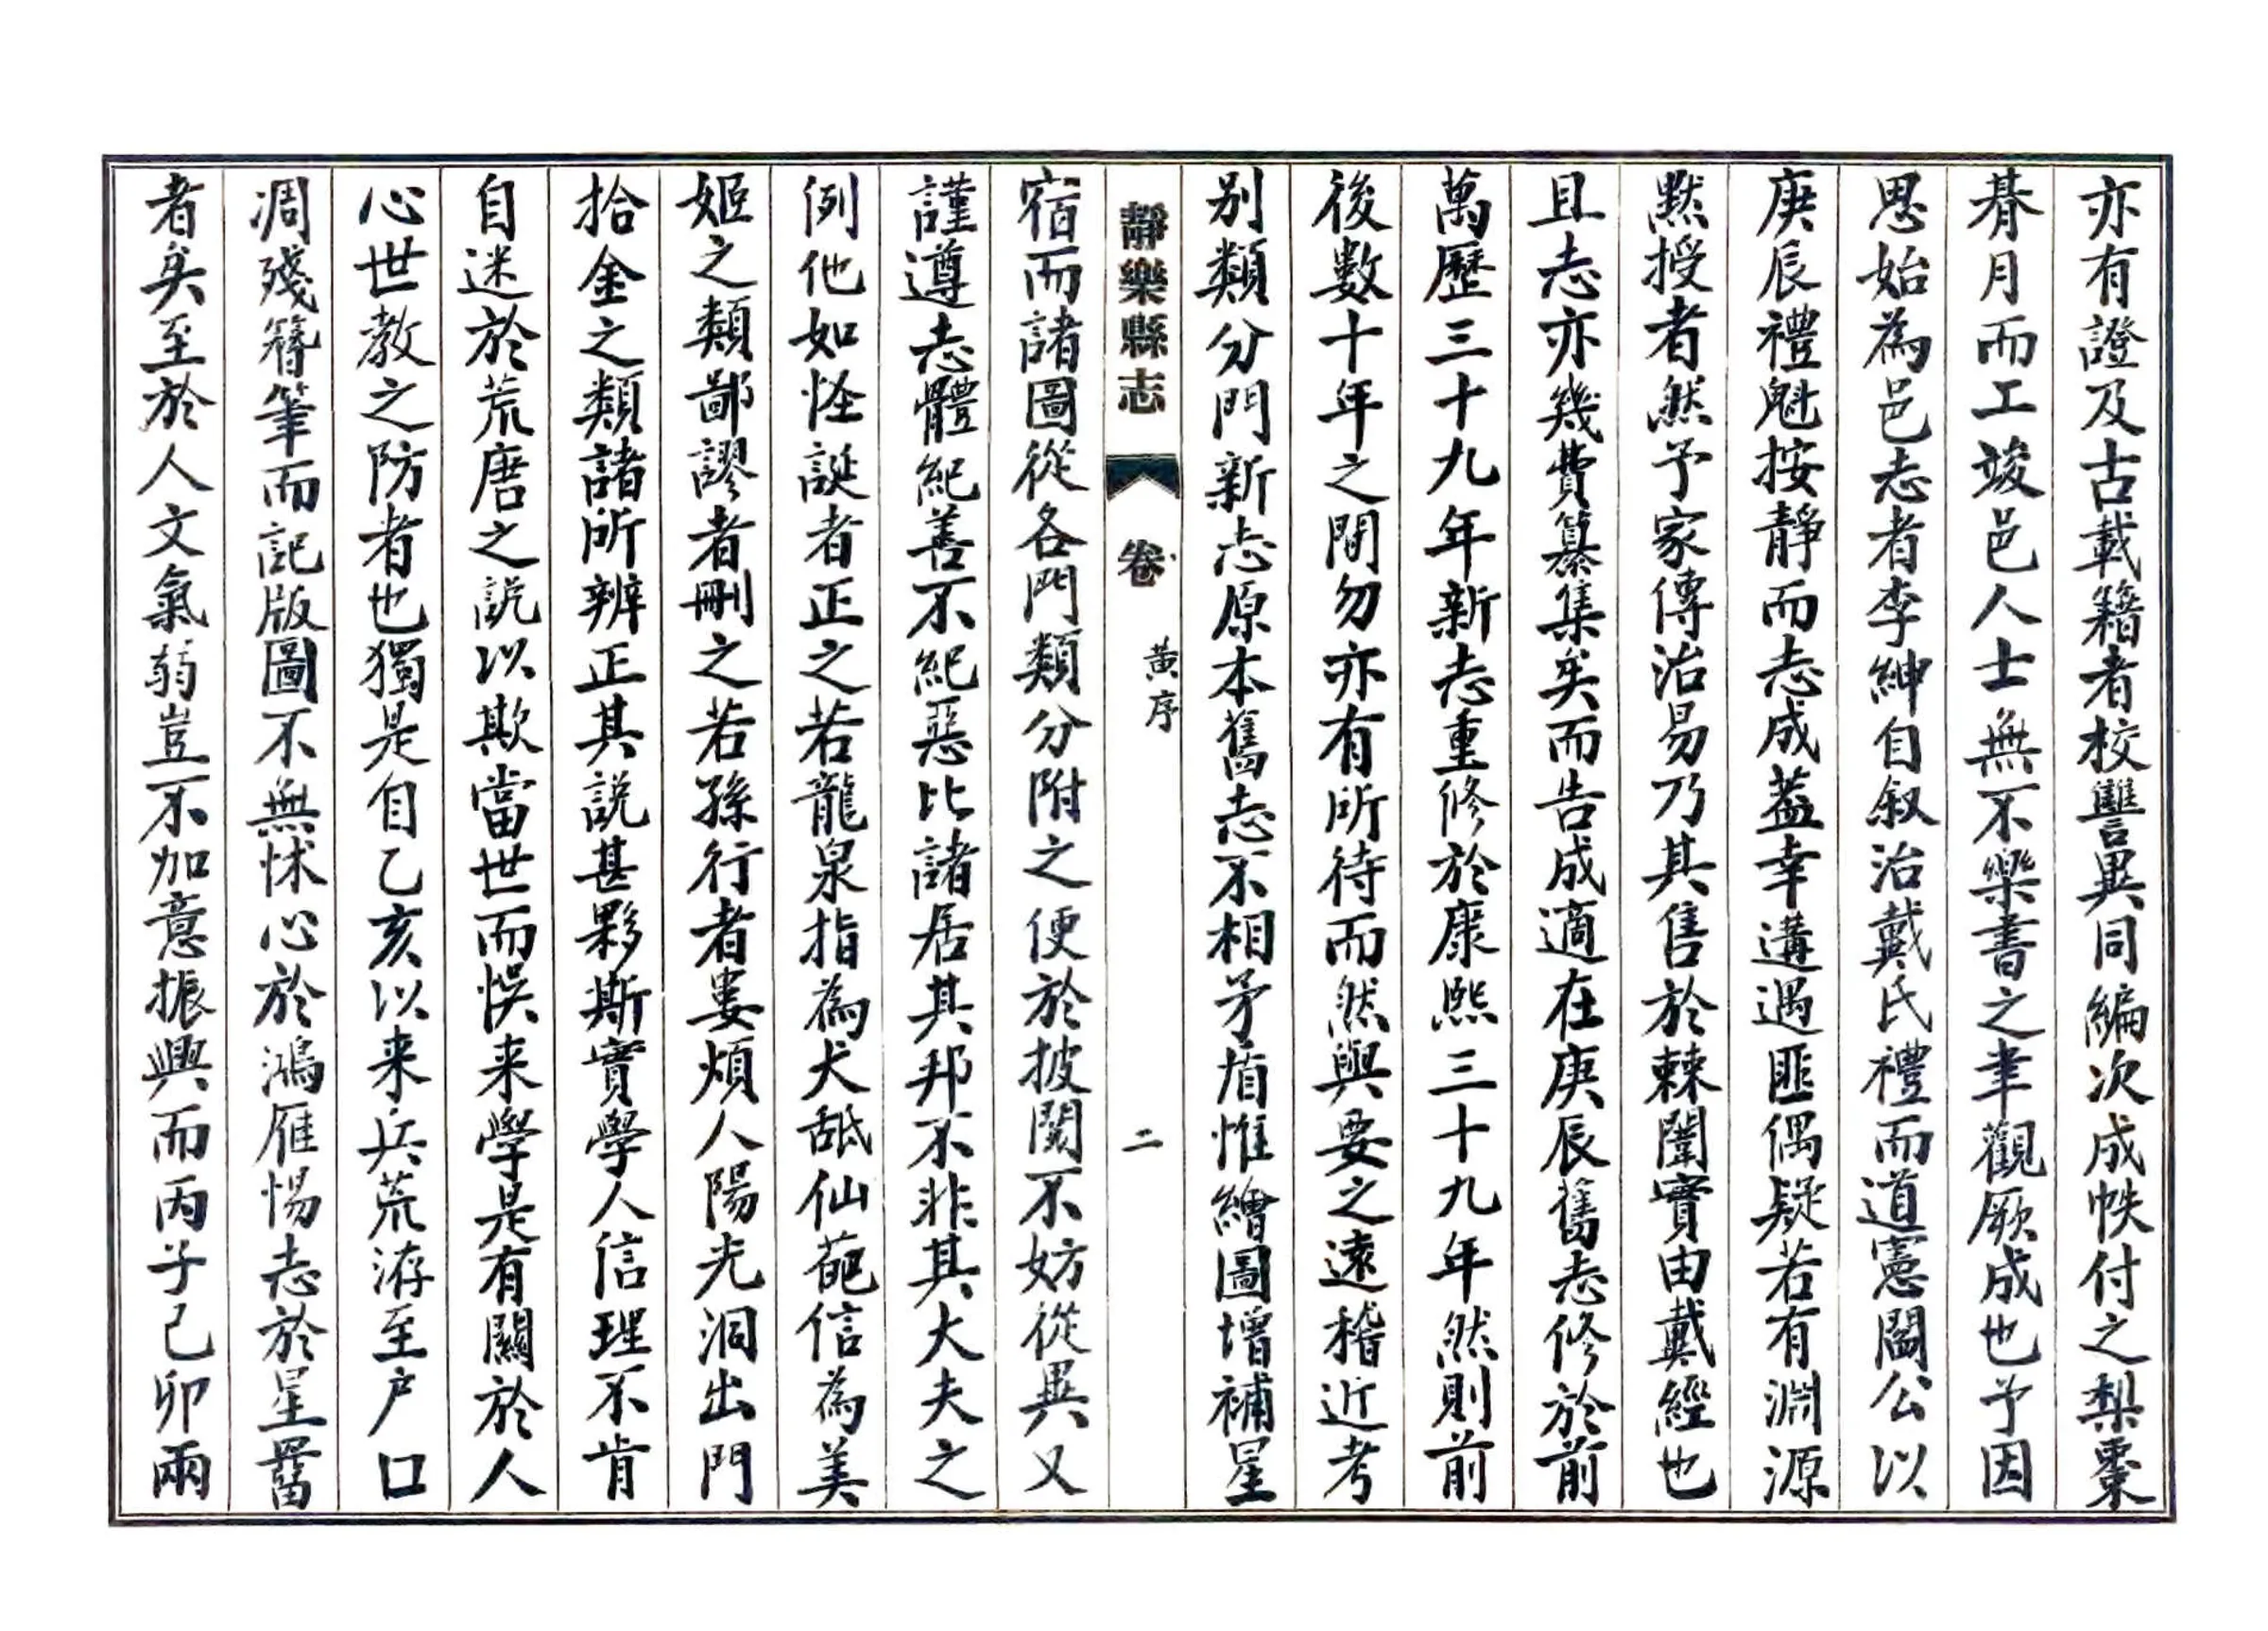 亦有證及古載籍者校讐異同編次成帙付之梨棗
朞月而工竣邑人士無不樂書之聿觀厥成也予因
思始為邑志者李紳自叙治戴氏禮而道憲閻公以
庚辰禮魁按靜而志成蓋幸遘遇匪偶疑若有淵源
默授者然予家傳治易乃其售於棘闈實由戴經也
且志亦幾費纂集矣而告成適在庚辰舊志修於前
萬歷三十九年新志重修於康熙三十九年然則前
後數十年之間勿亦有所待而然與要之遠稽近考
別類分門新志原本舊志不相矛盾惟繪圖增補星
靜樂縣志
卷
黃序
二
宿而諸圖從各門類分附之便於披閱不妨從異又
謹遵志體紀善不紀惡比諸居其邦不非其大夫之
例他如怪誕者正之若龍泉指為犬舐仙葩信為美
姬之類鄙謬者刪之若孫行者婁煩人陽光洞出門
拾金之類諸所辨正其說甚夥斯實學人信理不肯
自迷於荒唐之說以欺當世而悞来學是有關於人
心世教之防者也獨是自乙亥以来兵荒洊至户口
凋殘簪筆而記版圖不無怵心於鴻雁惕志於星罶
者矣至於人文氣弱豈不加意振興而丙子己卯兩